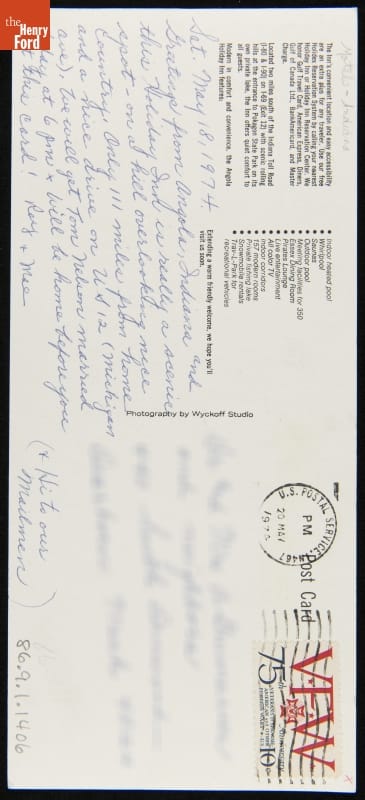 from the collections of
The Henry Ford
The Inn's convenient location and easy accessibility
are an extra plus for any traveler. Use our free
Holidex Reservation System by calling your nearest
Holiday Inn or Holiday Inn Reservation Center. We
honor Gulf Travel Card, American Express, Diners,
Gulf of Canada Ltd., BankAmericard, and Master
Charge.
Located two miles south of the Indiana Toll Road
(I-80 & I-90) on I-69 (Exit 12) with scenic rolling
hills at the entrance to Pokagon State Park on its
own private lake, the Inn offers quiet comfort to
all guests.
Modern in comfort and convenience, the Angola
Holiday Inn features:
• Indoor heated pool
• Whirlpool
• Saunas
• Outdoor pool
• Meeting facilities for 350
• Essex Dining Room
• Pirates Lounge
• Live entertainment
• All color TV
• Indoor corridors
• 157 modern rooms
• Private fishing lake
• Snowmobile rentals
• Trav-L-Park for
recreational vehicles
Extending a warm friendly welcome, we hope you'll
visit us soon.
Sat. May 18, 1974
Greetings from Angola, Indiana and
this Hol. Inn just us really a scenic
spot on a lake overlooking nice
Country. Only 111 miles from home
and a nice drive on US 12 (Michigan
ave)
6 pm got Tom Nelson married
will be home before you
get this card Ray & Mae
(& Hi to our
Mailmen)
Photography by Wyckoff Studio
Post Card
U.S. POSTAL SERVICE
PM
20 MAY
VFW
75th Anniversary
VETERANS OF FOREIGN
WARS
10c
86.9.1.1406